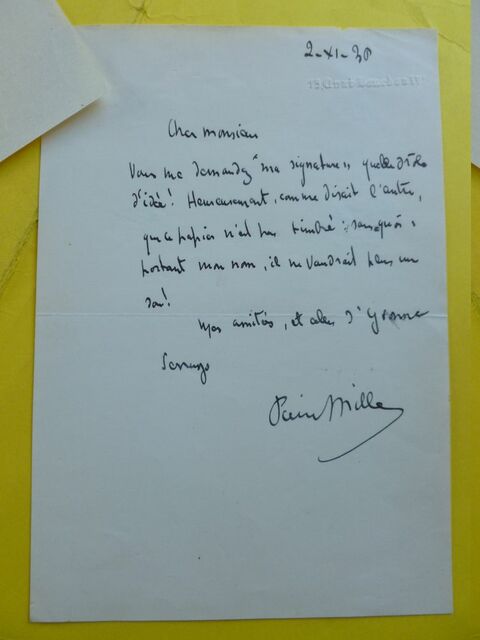 2-XI-30
Cher monsieur
Vous me demandez "ma signature", quelle drôle
d'idée! Heureusement, comme disait l'autre,
que ce papier n'est pas timbré: sans quoi,
portant mon nom, il ne vaudrait plus un
sou!
Mes amitiés, et celles d'Yvonne
Serruys
Pierre Mille